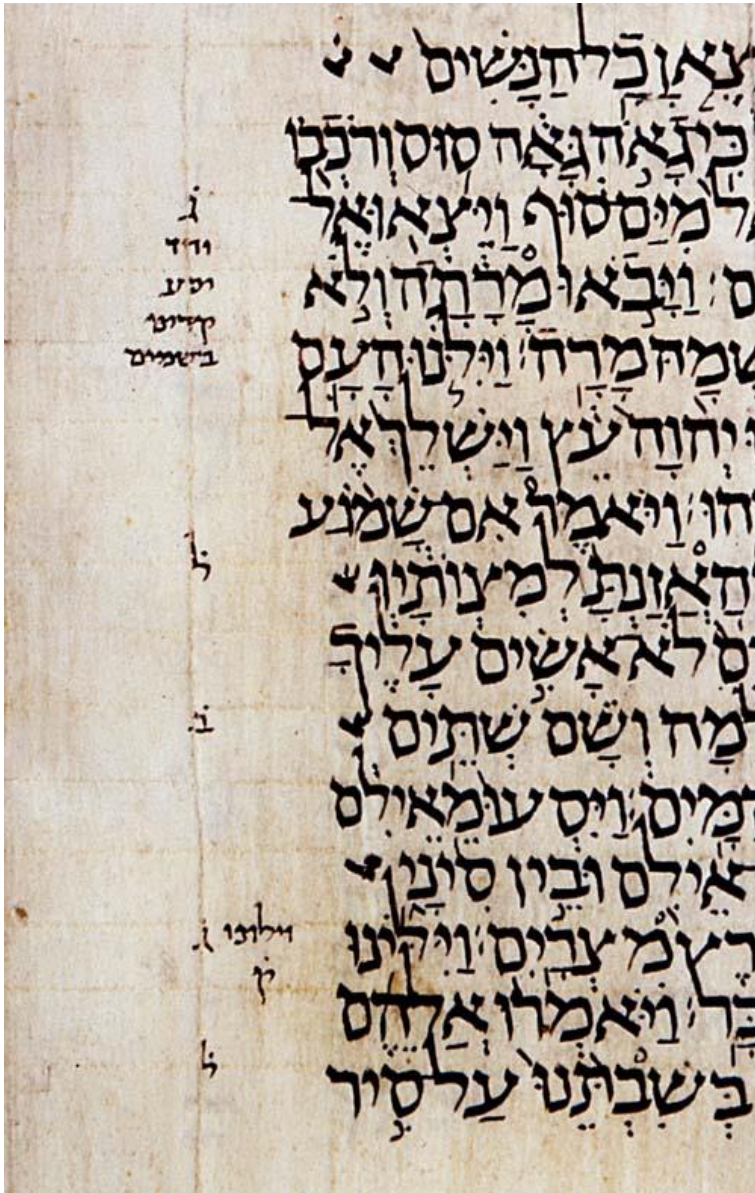 צֶאןָ כָל הַנָּשִׁים
כִּי גָאֹה גָּאָה סוּס וְרֹכְבוֹ
אֶל מִיַּם סוּף וַיֵּצְאוּ אֶל
ם׃ וַיָּבֹאוּ מָרָתָה וְלֹא
שְׁמָהּ מָרָה׃ וַיִּלֹּנוּ הָעָם
יְהוָה עֵץ וַיַּשְׁלֵךְ אֶל
הוּ׃ וַיֹּאמֶר אִם שָׁמוֹעַ
וְהַאֲזַנְתָּ לְמִצְוֹתָיו
ם לֹא אָשִׂים עָלֶיךָ
לִמָה וְשָׁם שְׁתֵּים
הַמָּיִם׃ וַיִּסְעוּ מֵאֵילִם
אֵילִם וּבֵין סִינָי
רֶץ מִצְרָיִם׃ וַיִּלִּינוּ
בָּר׃ וַיֹּאמְרוּ אֲלֵהֶם
בְּשִׁבְתֵּנוּ עַל סִיר
ג
בשמים
ל
ב
ג וילונו
ק
ל